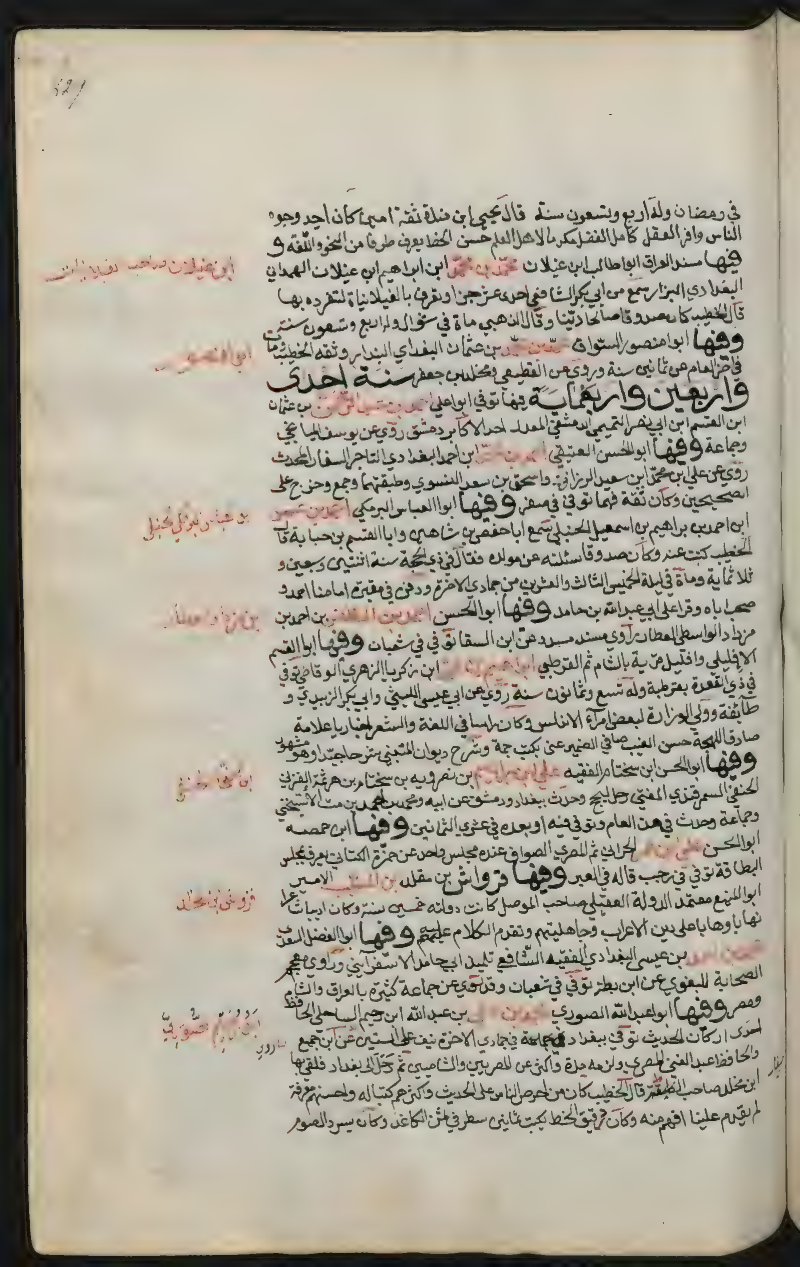 في رمضان وله اربع وتسعون سنة قال يحيى ابن مندة ثقة امين كان احد وجوه
الناس وافر العقل كامل الفضل مكرما لاهل العلم حسن الخط يعرف طرفا من النحو واللغة و
فيها مسند العراق ابو طالب ابن غيلان محمد بن محمد ابن ابراهيم ابن غيلان الهمداني
البغدادي البزار سمع من ابي بكر الشافعي احدى عشر جزا وتعرف بالغيلانياة لتفرده بها
قال الخطيب كان صدوقا صالحا دينا وقال الذهبي ماة في شوال وله اربع وتسعون سنة
وفيها ابو منصور السواق محمد بن محمد بن عثمان البغدادي البندار وثقه الخطيب مات
في اخر العام عن ثمانين سنة وروى عن القطيعي ومخلد بن جعفر سنة احدى
واربعين واربعماية فيها توفي ابو علي احمد بن عبد الرحمن بن عثمان
ابن القسم ابن ابي نصر التميمي الدمشقي المعدل احد الاكابر بدمشق روى عن يوسف الميانجي
وجماعة وفيها ابو الحسن العتيقي احمد بن محمد ابن احمد البغدادي التاجر السفار المحدث
روى عن علي ابن محمد ابن سعيد الرزاز واسحق بن سعد النسوي وطبقتهما وجمع وخرج على
الصحيحين وكان ثقة فهما توفي في صفر وفيها ابو العباس البرمكي احمد بن عمر
ابن احمد بن ابراهيم بن اسمعيل الحنبلي سمع ابا حفص بن شاهين وابا القسم بن حبابة قال
الخطيب كتبت عنه وكان صدوقا سئلته عن مولده فقال في ذي الحجة سنة اثنتين وسبعين و
ثلاثماية وماة في ليلة الخميس الثالث والعشرين من جمادي الاخرة ودفن في مقبرة امامنا احمد و
صحب اباه وقرا على ابي عبد الله بن حامد وفيها ابو الحسن احمد بن المظفر بن احمد بن
مزداد الواسطي العطار راوي مسند مسدد عن ابن السقا توفي في شعبان وفيها ابو القسم
الافليلي وافليل قرية بالشام ثم القرطبي ابراهيم بن محمد ابن زكريا الزهري الوقاصي توفي
في ذي القعدة بقرطبة وله تسع وثمانون سنة روى عن ابي عيسى الليثي وابي بكر الزبيدي و
طائفة وولي الوزارة لبعض امرآة الاندلس وكان راسا في اللغة والشعر اخباريا علامة
صادق اللهجة حسن الغيب صافي الضمير عني بكتب جمة وشرح ديوان المتنبي شرحا جيدا وهو مشهور
وفيها ابو الحسن ابن سختام الفقيه علي ابن ابراهيم بن نصرويه بن سختام بن هرثمة الغزني
الحنفي السمرقندي المفتي رحل ليحج وحدث ببغداد ودمشق عن ابيه ومحمد بن احمد بن مت الاشتيخني
وجماعة وحدث في هذا العام وتوفي فيه او بعده في عشر الثمانين وفيها ابن حمصه
ابو الحسن علي بن عمر الحراني ثم المصري الصواف عنده مجلس واحد عن حمزة الكتاني يعرف بمجلس
البطاقة توفي في رجب قاله في العبر وفيها قرواش بن مقلد بن المسيب الامير
ابو المنيع معتمد الدولة العقيلي صاحب الموصل كانت دولته خمسين سنة وكان اديبا شاعرا
نهابا وهابا على دين الاعراب وجاهليتهم وتقدم الكلام عليهم وفيها ابو الفضل السعدي
محمد بن احمد بن عيسى البغدادي الفقيه الشافعي تلميذ ابي حامد الاسفرايني وراوي معجم
الصحابة للبغوي عن ابن بطة توفي في شعبان وقد روى عن جماعة كثيرة بالعراق والشام
ومصر وفيها ابو عبد الله الصوري محمد بن علي بن عبد الله ابن رحيم الساحلي الحافظ
احدى اركان الحديث توفي ببغداد في جمادي الاخرة نيف على الستين عن ابن جميع
والحافظ عبد الغني المصري ولزمه مدة واكثر عن المصريين والشاميين ثم رحل الى بغداد فلقي بها
ابن مخلد صاحب الصفار قال الخطيب كان من احرص الناس على الحديث واكثرهم كتبا له واحسنهم معرفة
لم يقدم علينا افهم منه وكان دقيق الخط يكتب ثمانين سطر في ثمن الكاغد وكان يسرد الصوم
ابن غيلان صاحب الغيلانيات
ابو المنصور
بن عباس البرمكي الحنبلي
بن مزداد العطار
ابن سختام الحنفي
قرواش بن مقلد